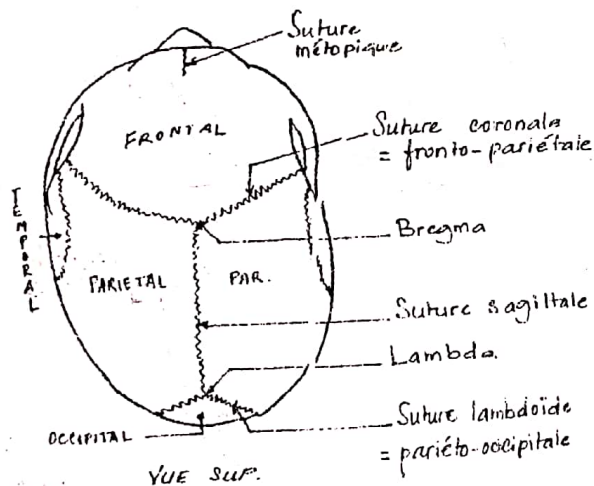 Suture
métopique
FRONTAL
Suture coronale
= fronto-pariétale
TEMPORAL
Bregma
PARIETAL
PAR.
Suture sagittale
Lambda.
Suture lambdoïde
= pariéto-occipitale
OCCIPITAL
VUE SUP.